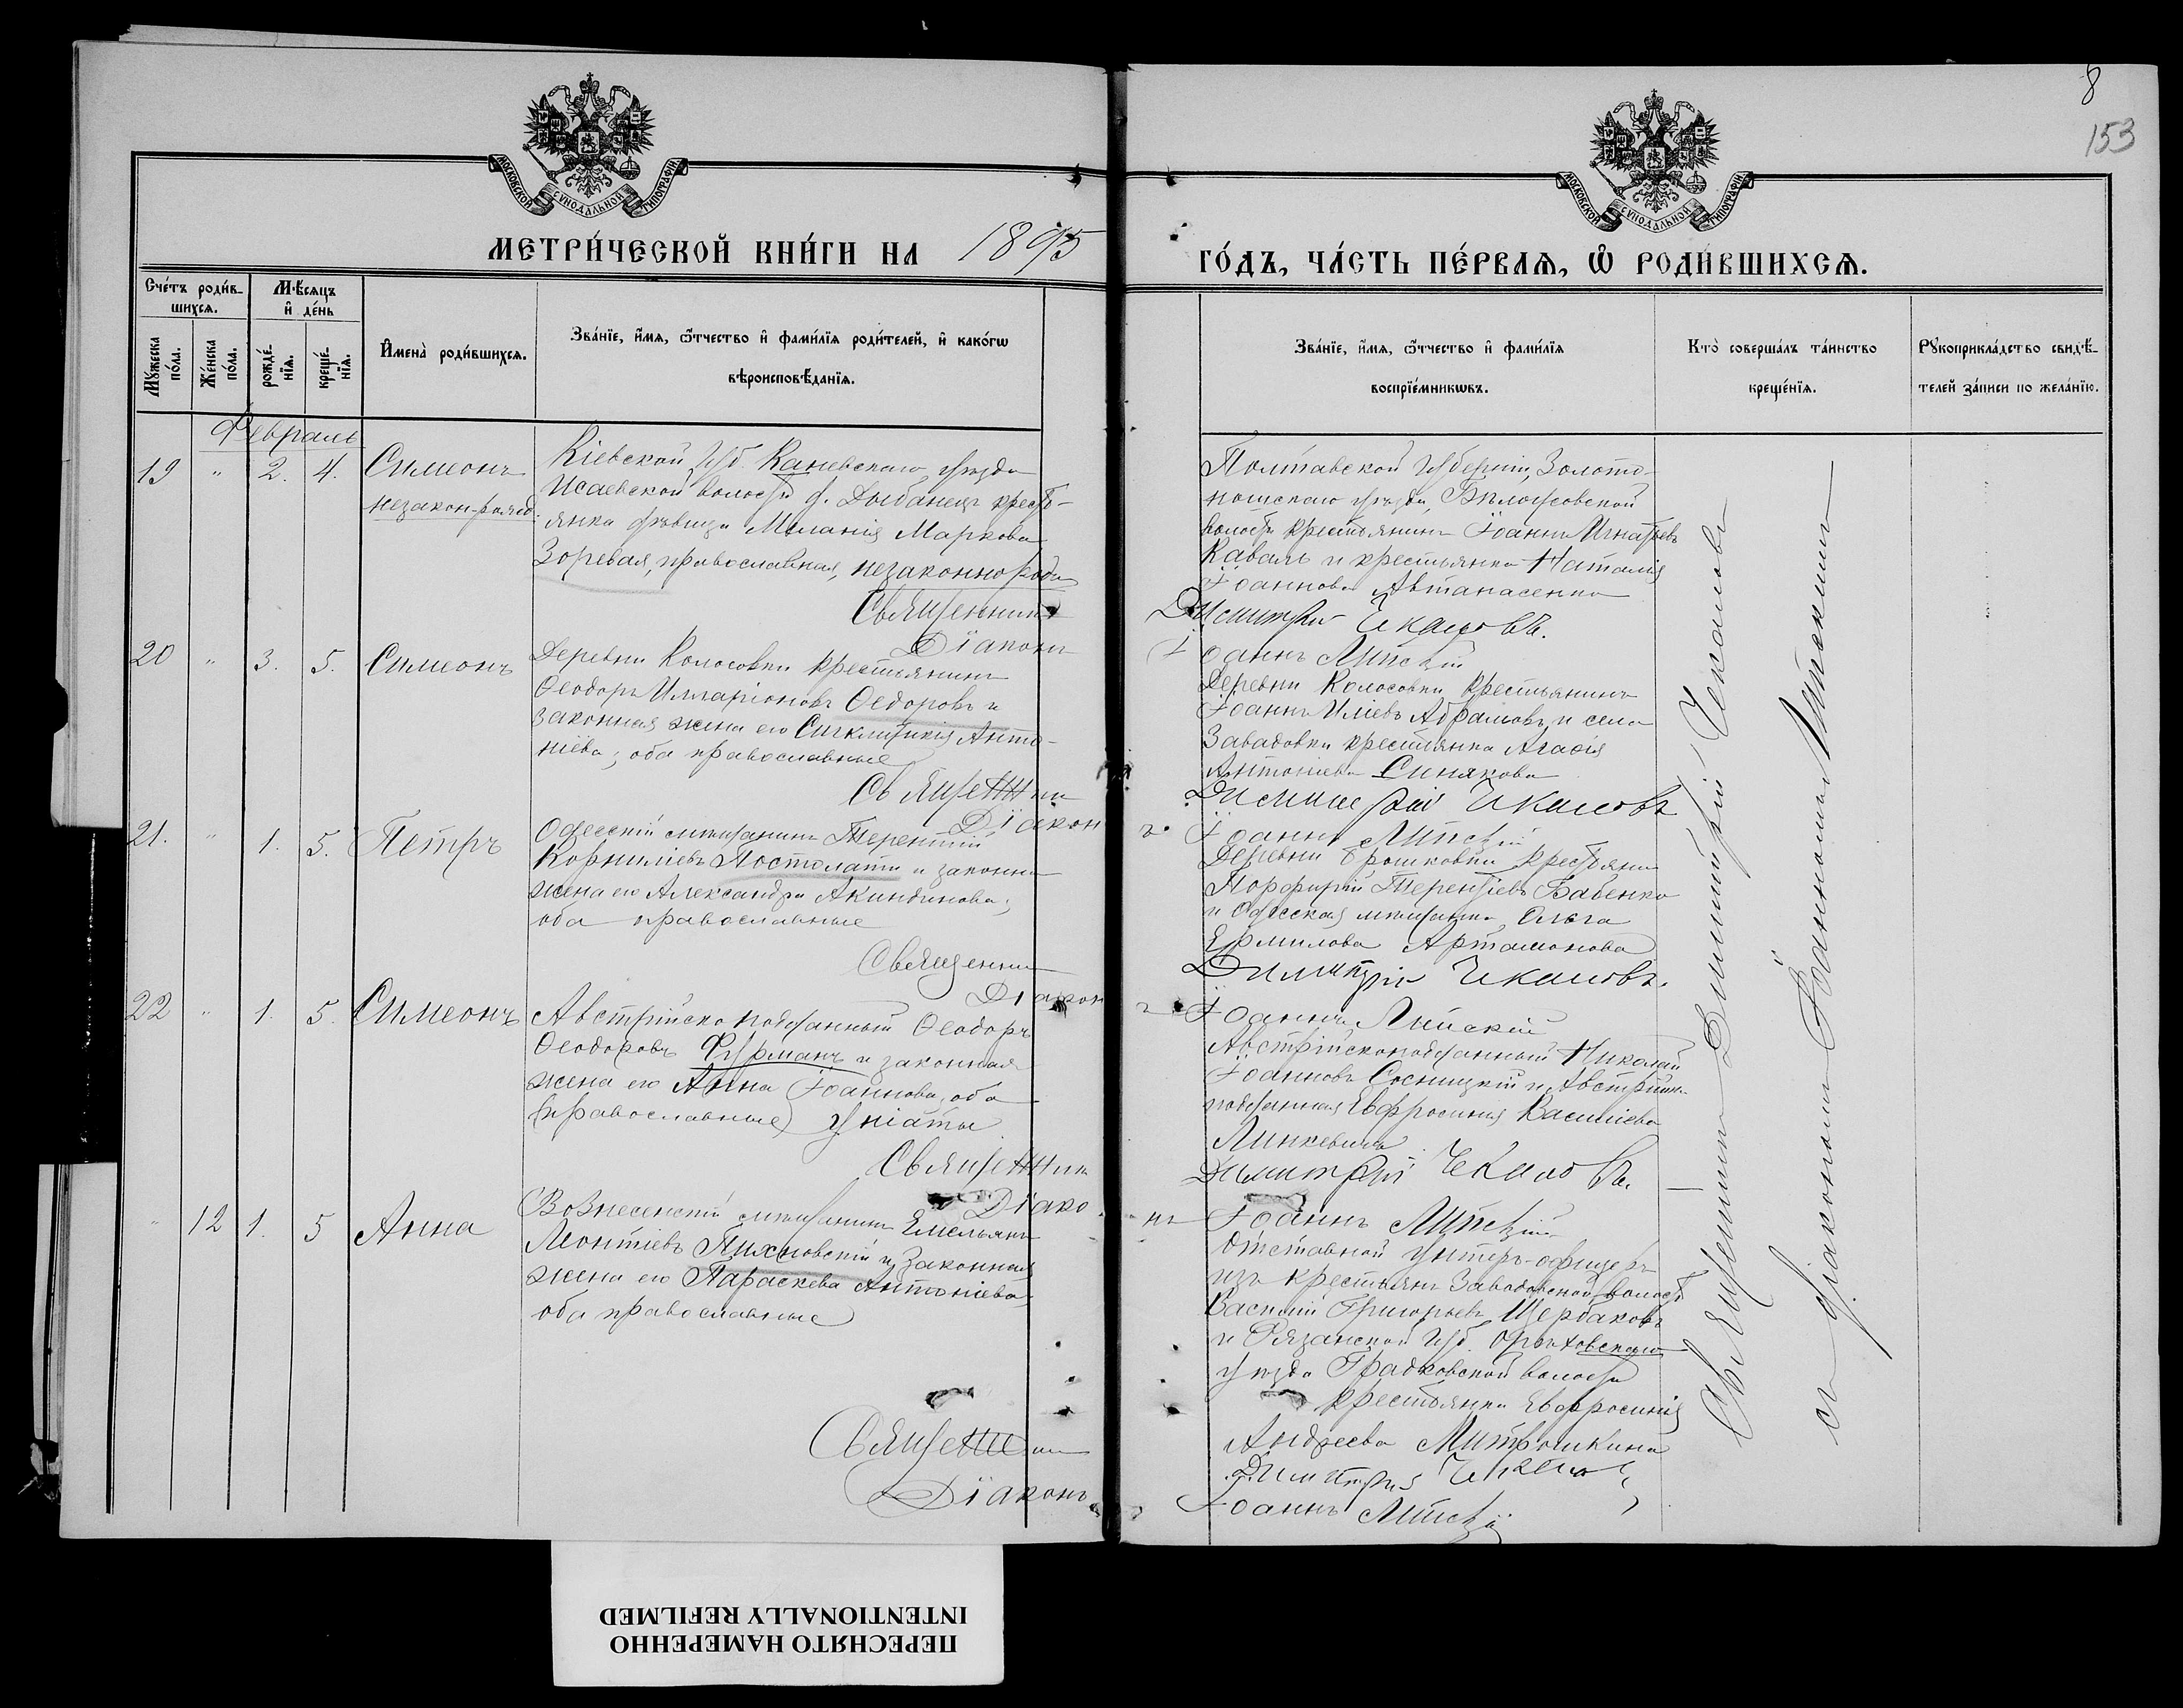 8
153
МОСКОВСКОЙ СУНОДАЛЬНОЙ ТИПОГРАФІИ
МОСКОВСКОЙ СУНОДАЛЬНОЙ ТИПОГРАФІИ
МЕТРИ́ЧЕСКОЙ КНИ́ГИ НА 1895
ГО́ДЪ, ЧА́СТЬ ПЕ́РВАѦ, Ѡ РОДИ́ВШИХСѦ.
Сче́тъ роди́в-
шихсѧ.
Мꙋ́жеска по́ла.
Же́нска по́ла.
Мѣ́сѧцъ
и де́нь
рожде́-
нїѧ.
креще́-
нїѧ.
Имена̀ роди́вшихсѧ.
Зва́нїе, и́мѧ, ѻ́тчество и фами́лїѧ роди́телей, и како́гѡ
вѣроисповѣ́данїѧ.
Зва́нїе, и́мѧ, ѻ́тчество и фами́лїѧ
воспрїе́мникѡвъ.
Кто̀ соверша́лъ та́инство
креще́нїѧ.
Рꙋкоприкла́дство свидѣ́-
телей за́писи по жела́нїю.
Февраль
19 " 2. 4. Симеонъ
незакон-рожд.
Кіевской губ. Каневскаго уѣзда
Исаевской волости д. Дыбанецъ кресть-
янка дѣвица Меланія Маркова
Зоревая, православная, незаконнорожд
Священникъ
Діаконъ
Полтавской губерніи, Золото-
ношскаго уѣзда, Бѣлоусовской
волости крестьянинъ Іоаннъ Игнатьевъ
Коваль и крестьянка Наталія
Іоаннова Автанасенко
Димитрій Чкаловъ.
Іоаннъ Липскій
20 " 3. 5. Симеонъ
Деревни Колосовки крестьянинъ
Ѳеодоръ Илларіоновъ Ѳедоровъ и
законная жена его Синклитикія Анто-
ніева, оба православные
Священни
Діакон
Деревни Колосовки крестьянинъ
Іоаннъ Иліевъ Абрамовъ и села
Завадовки крестьянка Агаѳія
Антоніева Синякова
Димитрій Чкаловъ
ъ Іоаннъ Липскій
21. " 1. 5. Петръ
Одесскій мѣщанинъ Терентій
Корниліевъ Постолати и законная
жена его Александра Акиндинова,
оба православные
Священни
Діакон
Деревни крестьянинъ
Порфирій Терентіевъ Бабенко
и Одесская мѣщанка Ольга
Ермилова Артамонова
Димитрій Чкаловъ.
ъ Іоаннъ Липскій
22 " 1. 5. Симеонъ
Австрійско подданный Ѳеодоръ
Ѳеодоровъ Фурманъ и законная
жена его Анна Іоаннова, оба
(православные) уніаты
Священник
Діако
Австрійскоподданный Николай
Іоанновъ Сосницкій и Австрійско
подданная Евфросинія Василіева
Линкевичъ
Димитрій Чкаловъ.
нъ Іоаннъ Липскій
" 12 1. 5 Анна
Вознесенскій мѣщанинъ Емельянъ
Леонтіевъ Пихновскій и законная
жена его Параскева Антоніева,
оба православные
Священни
Діаконъ
Отставной унтеръ-офицеръ
изъ крестьянъ Завадовской волости
Василій Григорьевъ Щербаковъ
и Рязанской губ.
уѣзда волости
крестьянка Евфросинія
Андреева Митрошкина
Димитрій Чкаловъ
Іоаннъ Липскій
Священникъ Димитрій Чекаловъ
съ діакономъ Іоанномъ Липскимъ
ПЕРЕСНЯТО НАМЕРЕННО
INTENTIONALLY REFILMED